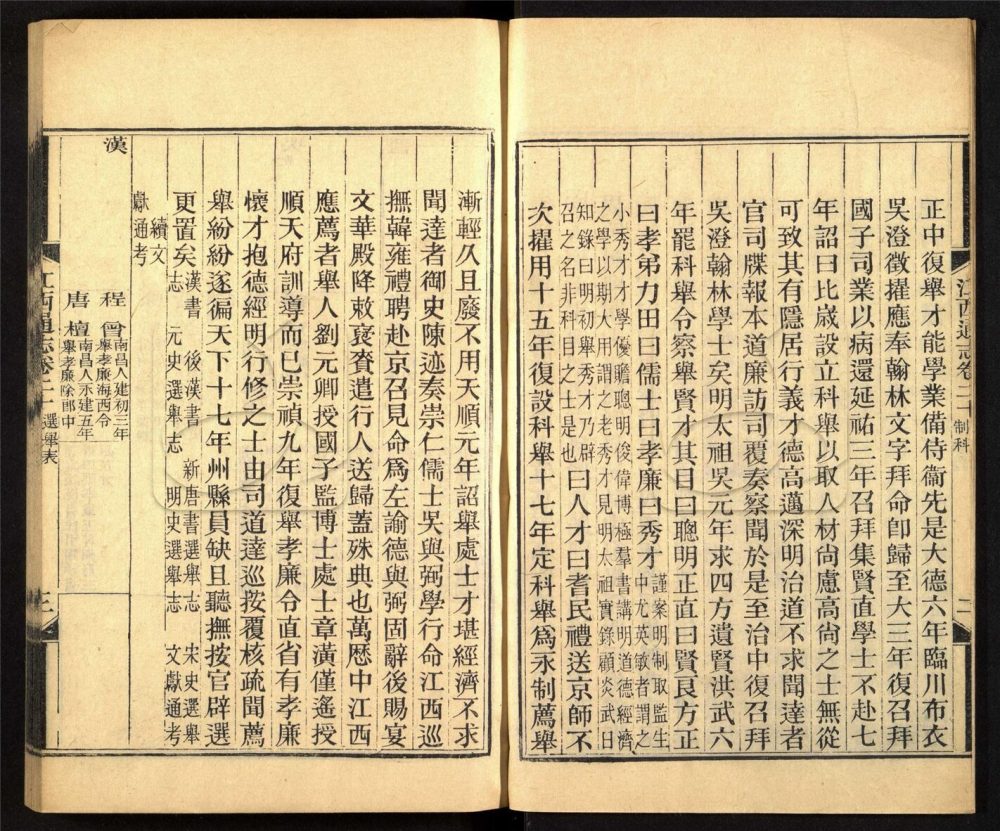 正中復舉才能學業備侍衞先是大德六年臨川布衣
吳澄徵擢應奉翰林文字拜命卽歸至大三年復召拜
國子司業以病還延祐三年召拜集賢直學士不赴七
年詔曰比歲設立科舉以取人材尙慮高尙之士無從
可致其有隱居行義才德高邁深明治道不求聞達者
官司牒報本道廉訪司覆奏察聞於是至治中復召拜
吳澄翰林學士矣明太祖吳元年求四方遺賢洪武六
年罷科舉令察舉賢才其目曰聰明正直曰賢良方正
曰孝弟力田曰儒士曰孝廉曰秀才謹案明制取監生
中尤英敏者謂之
小秀才才學優贍聰明俊偉博極羣書講明道德經濟
之學以期大用謂之老秀才見明太祖實錄顧炎武日
知錄曰明初舉秀才乃辟
召之名非科目之士是也曰人才曰耆民禮送京師不
次擢用十五年復設科舉十七年定科舉爲永制薦舉
江西通志卷二十 制科 二
漸輕久且廢不用天順元年詔舉處士才堪經濟不求
聞達者御史陳迹奏崇仁儒士吳與弼學行命江西巡
撫韓雍禮聘赴京召見命爲左諭德與弼固辭後賜宴
文華殿降敕褒賚遣行人送歸蓋殊典也萬歷中江西
應薦者舉人劉元卿授國子監博士處士章潢僅遙授
順天府訓導而已崇禎九年復舉孝廉令直省有孝廉
懷才抱德經明行修之士由司道達巡按覆核疏聞薦
舉紛紛遂徧天下十七年州縣員缺且聽撫按官辟選
更置矣漢書 後漢書 新唐書選舉志 宋史選舉
志 元史選舉志 明史選舉志 文獻通考
續文
獻通考
漢
程曾南昌人建初三年
舉孝廉海西令
唐檀南昌人永建五年
舉孝廉除郎中
江西通志卷二十 選舉表 三